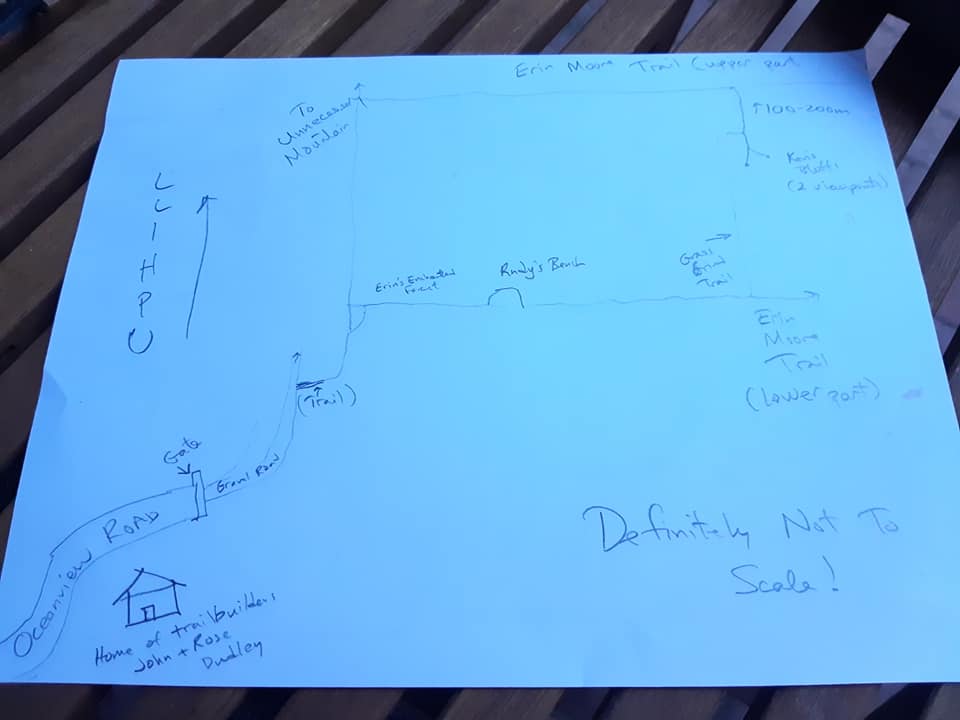 Erin Moore Trail (upper part
To
Unnecessary
Mountain
↑100-200m
Ken's
Bluffs
(2 viewpoints)
UPHILL
Erin's Enchanted
Forest
Rudy's Bench
Trail
Erin
Moore
Trail
(Lower part)
(Trail)
Gate
Gravel Road
Oceanview ROAD
Definitely Not To
Scale!
Home of trailbuilders
John + Rose
Dudley